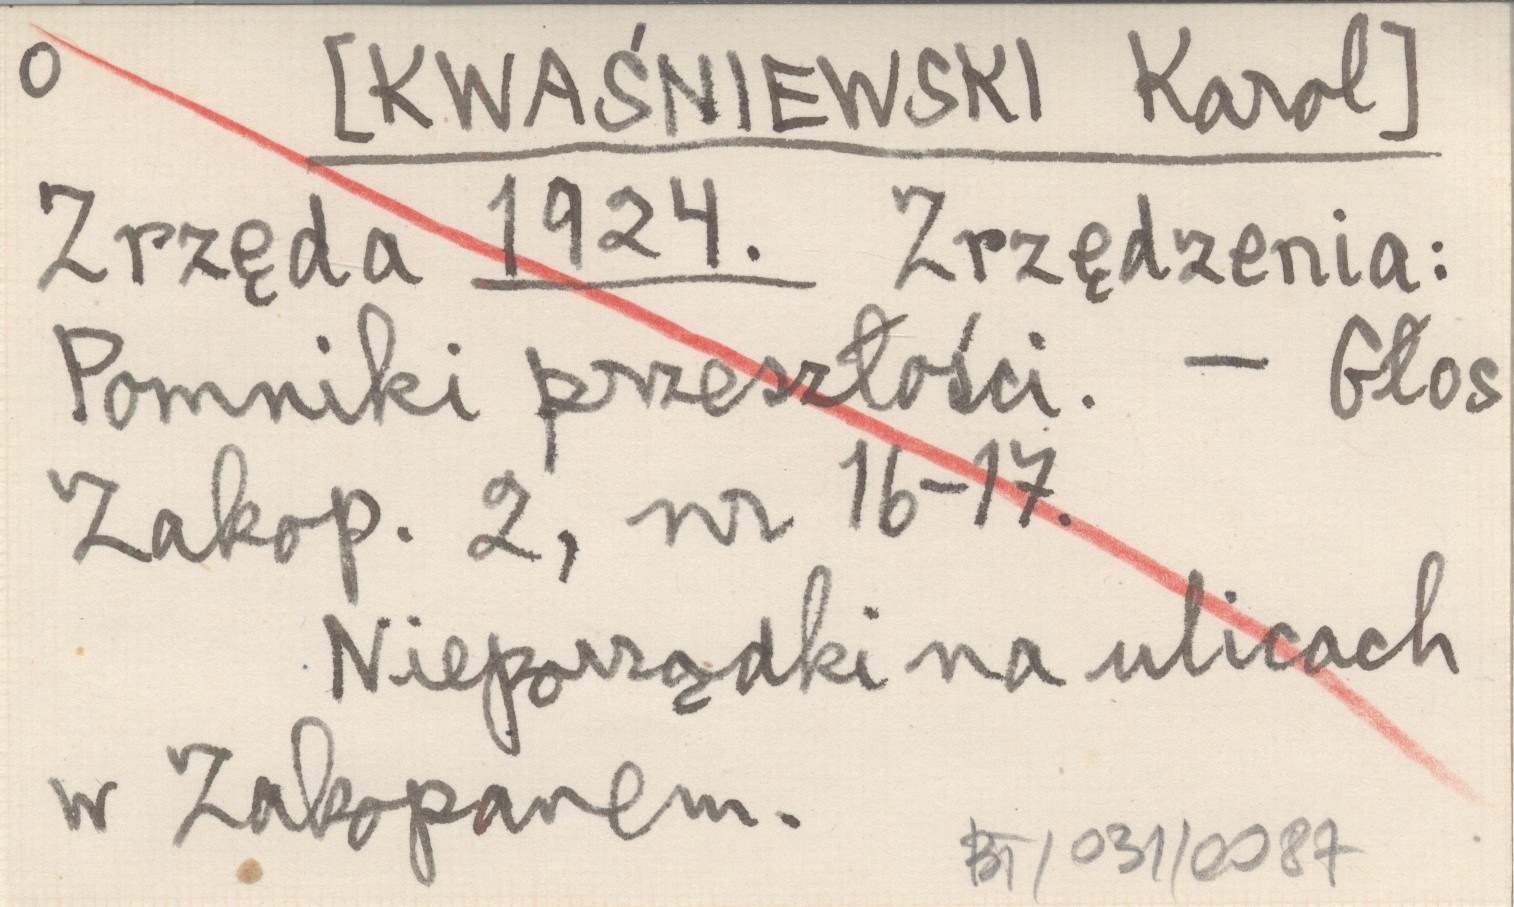 O [KWAŚNIEWSKI Karol]
Zrzęda 1924. Zrzędzenia:
Pomniki przeszłości. – Głos
Zakop. 2, nr 16-17.
Nieporządki na ulicach
w Zakopanem.
BT/031/0087